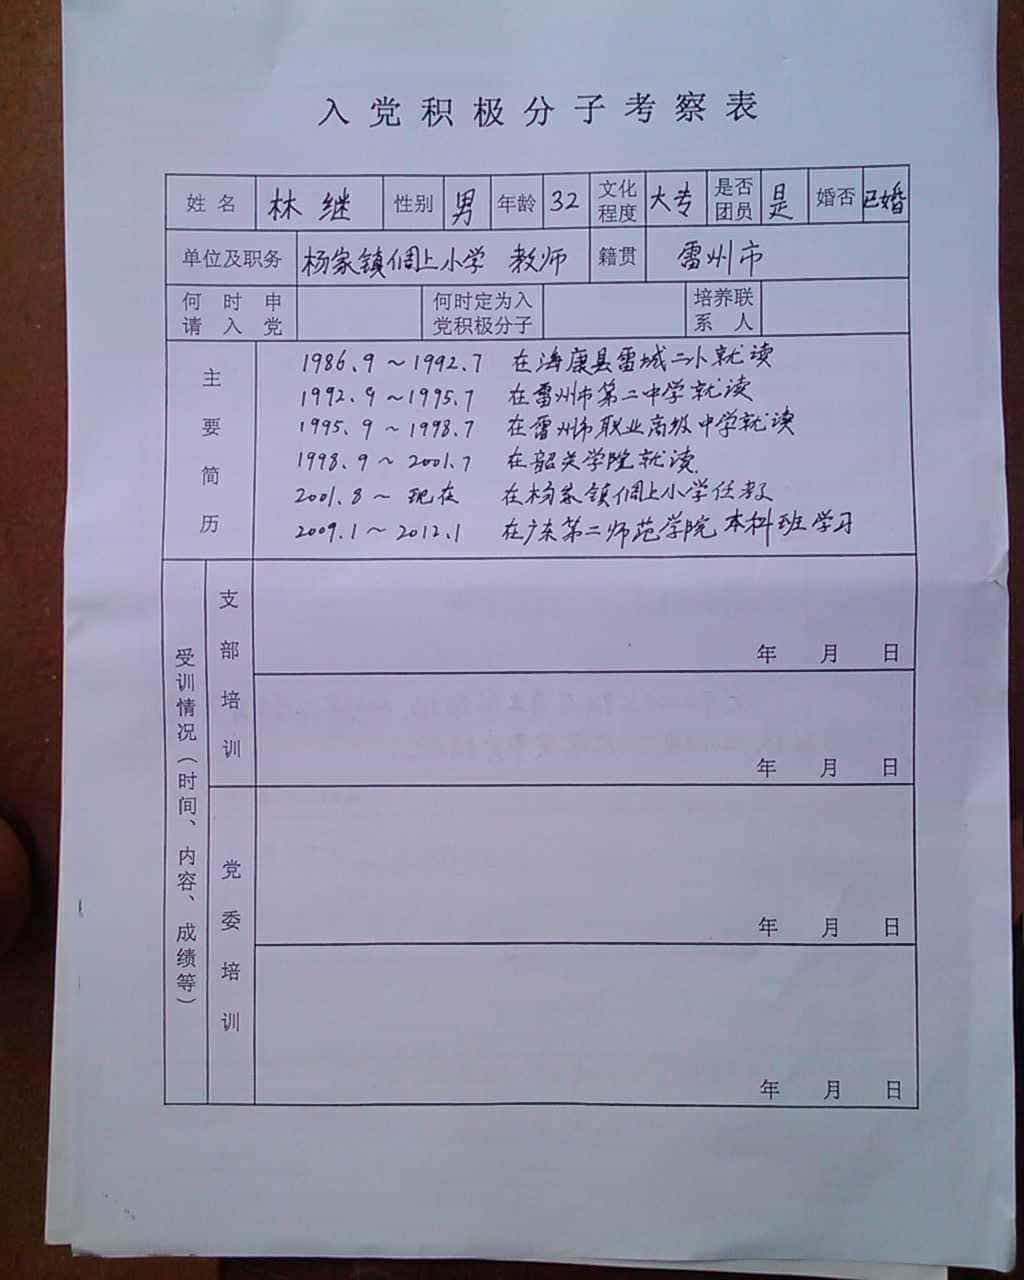 入党积极分子考察表
姓名 林继 性别 男 年龄 32 文化程度 大专 是否团员 是 婚否 已婚
单位及职务 杨家镇倜上小学 教师 籍贯 雷州市
何时申请入党 何时定为入党积极分子 培养联系人
主要简历
1986.9～1992.7 在海康县雷城二小就读
1992.9～1995.7 在雷州市第二中学就读
1995.9～1998.7 在雷州市职业高级中学就读
1998.9～2001.7 在韶关学院就读
2001.8～现在 在杨家镇倜上小学任教
2009.1～2012.1 在广东第二师范学院本科班学习
受训情况（时间、内容、成绩等）
支部培训
年 月 日
年 月 日
党委培训
年 月 日
年 月 日